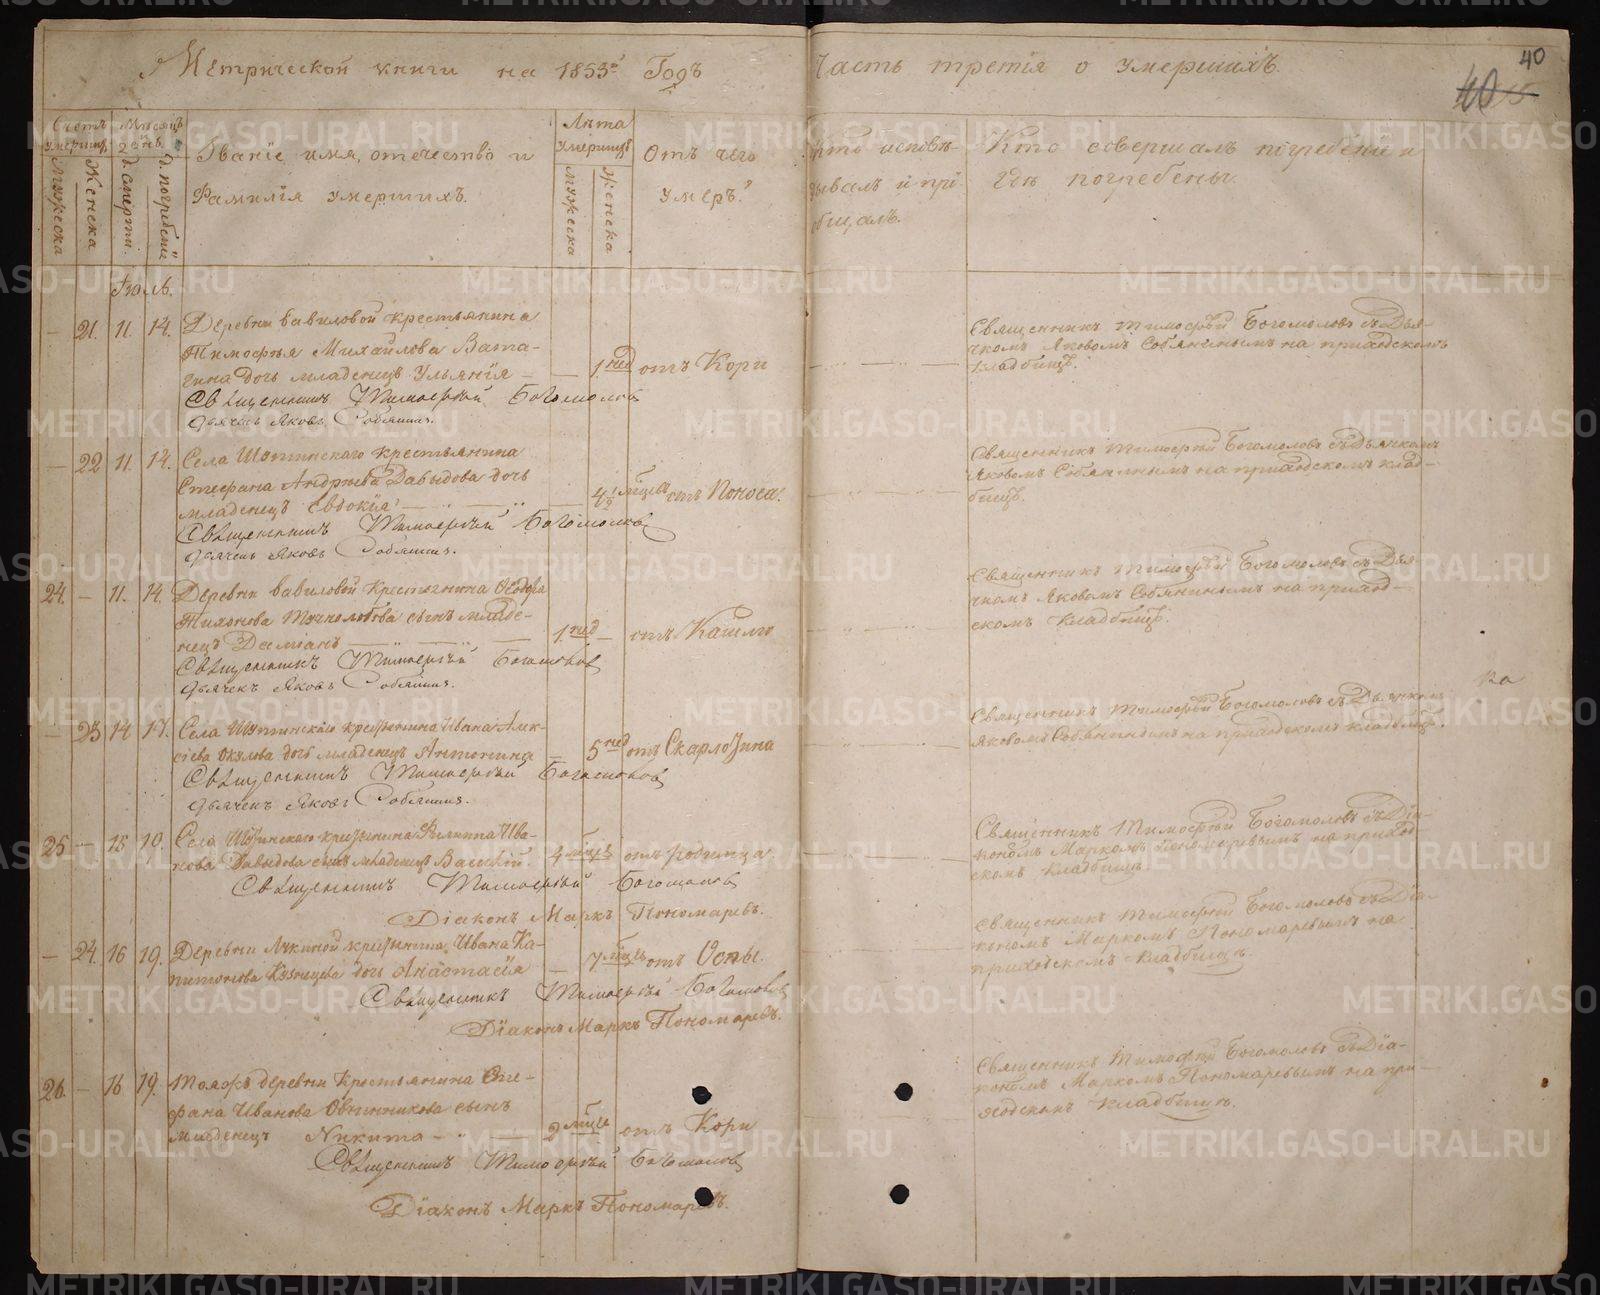 Метрической книги на 1853й Годъ
Часть третія о умершихъ.
40
Счетъ умершихъ
Мужеска
Женска
Мѣсяцъ и день
смерти
погребенія
Званіе имя, отечество и
Фамилія умершихъ.
Лѣта умершихъ
Мужеска
Женска
Отъ чего
умеръ?
Кто исповѣ-
дывалъ и прі-
общалъ.
Кто совершалъ погребеніе и
гдѣ погребены.
Іюль.
– 21. 11. 14. Деревни Вавиловой крестьянина
Тимофея Михайлова Вата-
гина дочь младенецъ Ульянія — 1. нед отъ Кори
Священникъ Тимофѣй Богомоловъ
Дьячекъ Яковъ Собянинъ.
Священникъ Тимофѣй Богомоловъ съ Дья-
чкомъ Яковомъ Собянинымъ на приходскомъ
кладбищѣ.
– 22 11. 14. Села Шутинскаго крестьянина
Стефана Андрѣева Давыдова дочь
младенецъ Евдокія — 4½ мѣсяц отъ Поноса.
Священникъ Тимофѣй Богомоловъ
Дьячекъ Яковъ Собянинъ.
Священникъ Тимофѣй Богомоловъ съ Дьячкомъ
Яковомъ Собянинымъ на приходскомъ клад-
бищѣ.
24. – 11. 14. Деревни Вавиловой крестьянина Ѳедора
Тихонова сынъ младе-
нецъ Даміанъ — 1. нед – отъ Кашлю
Священникъ Тимофѣй Богомоловъ
Дьячекъ Яковъ Собянинъ.
Священникъ Тимофѣй Богомоловъ съ Дья-
чкомъ Яковомъ Собянинымъ на приход-
скомъ кладбищѣ.
– 23 14 17. Села Шутинскаго крестьянина Ивана Алек-
сѣева Окулова дочь младенецъ Антонина – 5 нед отъ Скарлотина
Священникъ Тимофѣй Богомоловъ
Дьячекъ Яковъ Собянинъ.
Священникъ Тимофѣй Богомоловъ съ Дьячкомъ
Яковомъ Собянинымъ на приходскомъ кладбищѣ.
25 – 15 Села Шутинскаго крестьянина Филиппа Ива-
нова Давидова сынъ младенецъ Василій. 4 мѣсяц отъ родимца.
Священникъ Тимофѣй Богомоловъ
Діаконъ Маркъ Пономаревъ.
Священникъ Тимофѣй Богомоловъ съ Діа-
кономъ Маркомъ Пономаревымъ на приход
скомъ кладбищѣ.
– 24. 16 19. Деревни крестьянина Ивана Ка-
питонова Кузнецова дочь Анастасія – 7 мѣсяц отъ Оспы.
Священникъ Тимофѣй Богомоловъ
Діаконъ Маркъ Пономаревъ.
Священникъ Тимофѣй Богомоловъ съ Діа-
кономъ Маркомъ Пономаревымъ на
приходскомъ кладбищѣ.
26. – 16 19. Тояжъ деревни крестьянина Сте-
фана Иванова Овчинникова сынъ
младенецъ Никита — 2 мѣсяца отъ Кори
Священникъ Тимофѣй Богомоловъ
Діаконъ Маркъ Пономаревъ.
Священникъ Тимофѣй Богомоловъ съ Діа-
кономъ Маркомъ Пономаревымъ на при-
ходскомъ кладбищѣ.
METRIKI.GASO-URAL.RU